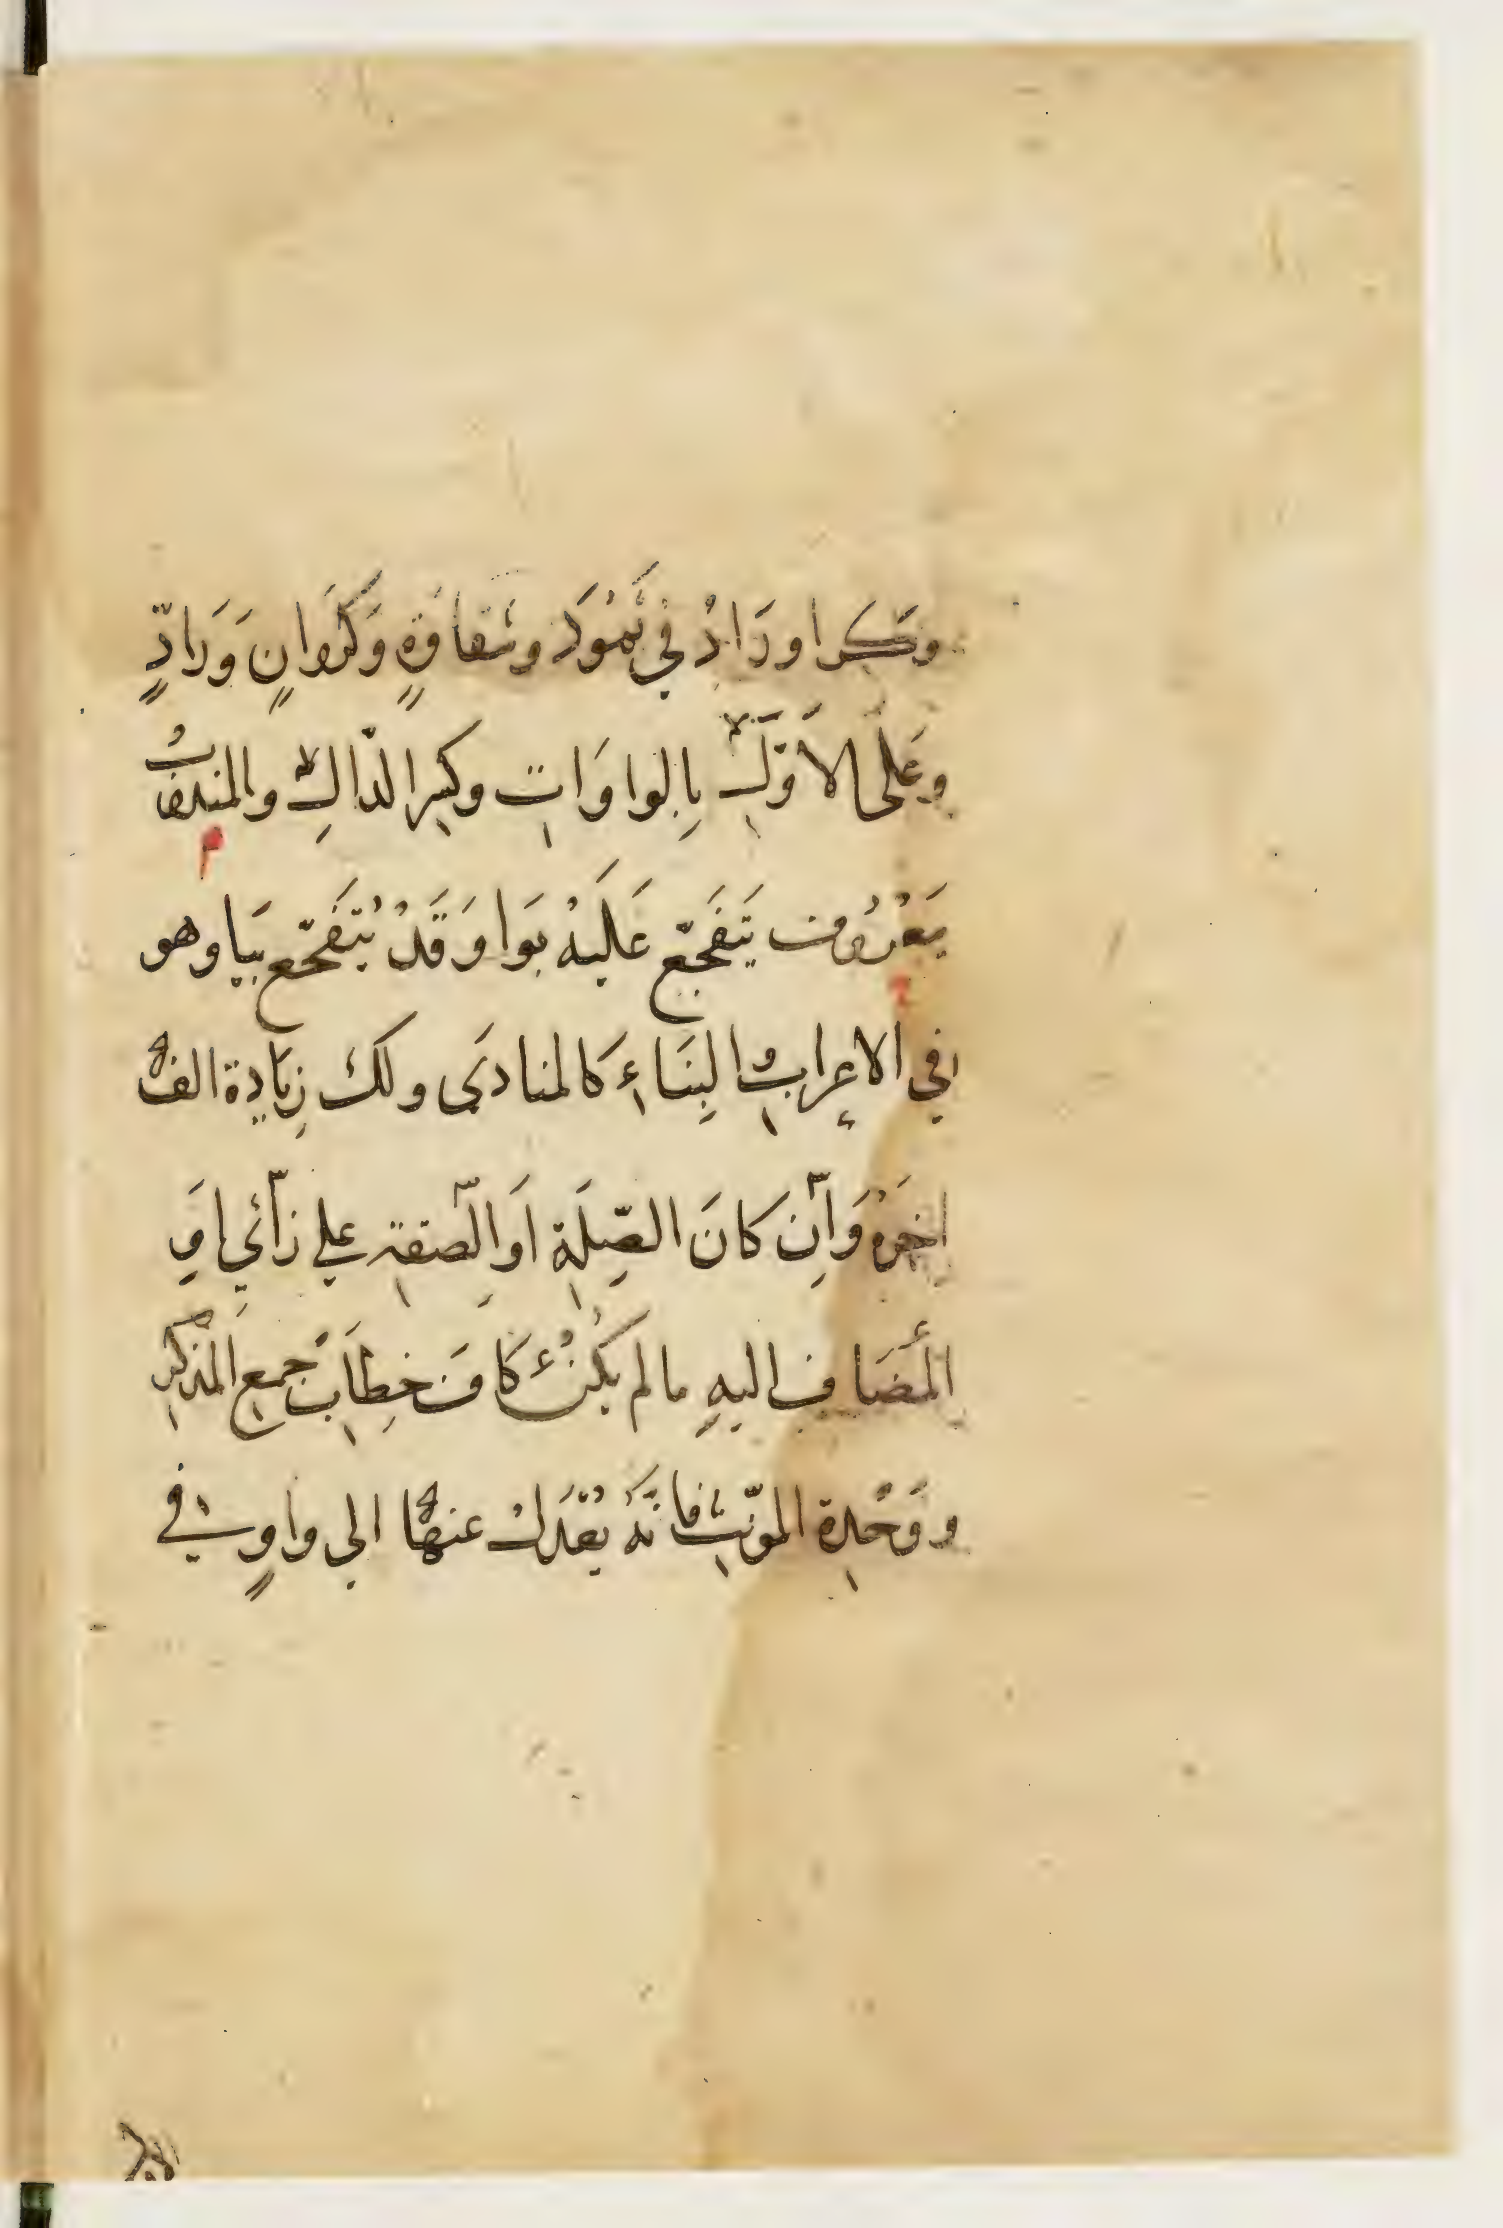 وَكَرا ورَادُ في ثَمُوْدَ وشقاوَةٍ وَكَرَوانٍ وَرَادٍّ
وعَلَى الاَوَّلِ بِالواوَاتِ وكسرِ الدّالِ والمندوبُ
يَعْرُوْف يَتَفَجّع عَلَيْهْ بوَا وَقَدْ يُتَفَجّع بيَا وهو
في الاعرابِ والبِنَاءِ كالمنادَى ولك زِيَادَة الف
اخِرَهْ وَاِنْ كانَ الصِّلَةِ اَو الصّفةِ على رَأىٍ اوِ
المُضَاف اليهِ مالم يكُنْ كَاف خِطابِ جمعِ المذكرِ
ووَحْدِة المؤنّثِ فانَّهُ يُعْدَلُ عنها الى واوٍ في